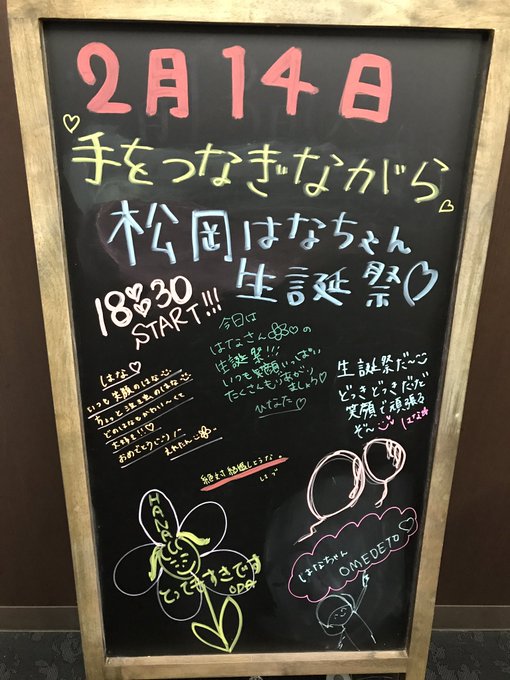 2月14日
手をつなぎながら
松岡はなちゃん
生誕祭♡
18:30
START!!!
今日は
はなさん♡の
生誕祭!!!
いつも笑顔いっぱい
たくさんもりあがり
ましょう♡
ひなた♡
はな♡
いつも笑顔のはな
ちょっと泣き虫のはな
どのはなもかわいくて
大好き!!♡
おめでとう
生誕祭だ〜
どっきどきだだ
笑顔で頑張る
ぞ〜 はな
絶対結婚しような。
HANA
とってもすきです
ODA
はなちゃん
OMEDETO♡